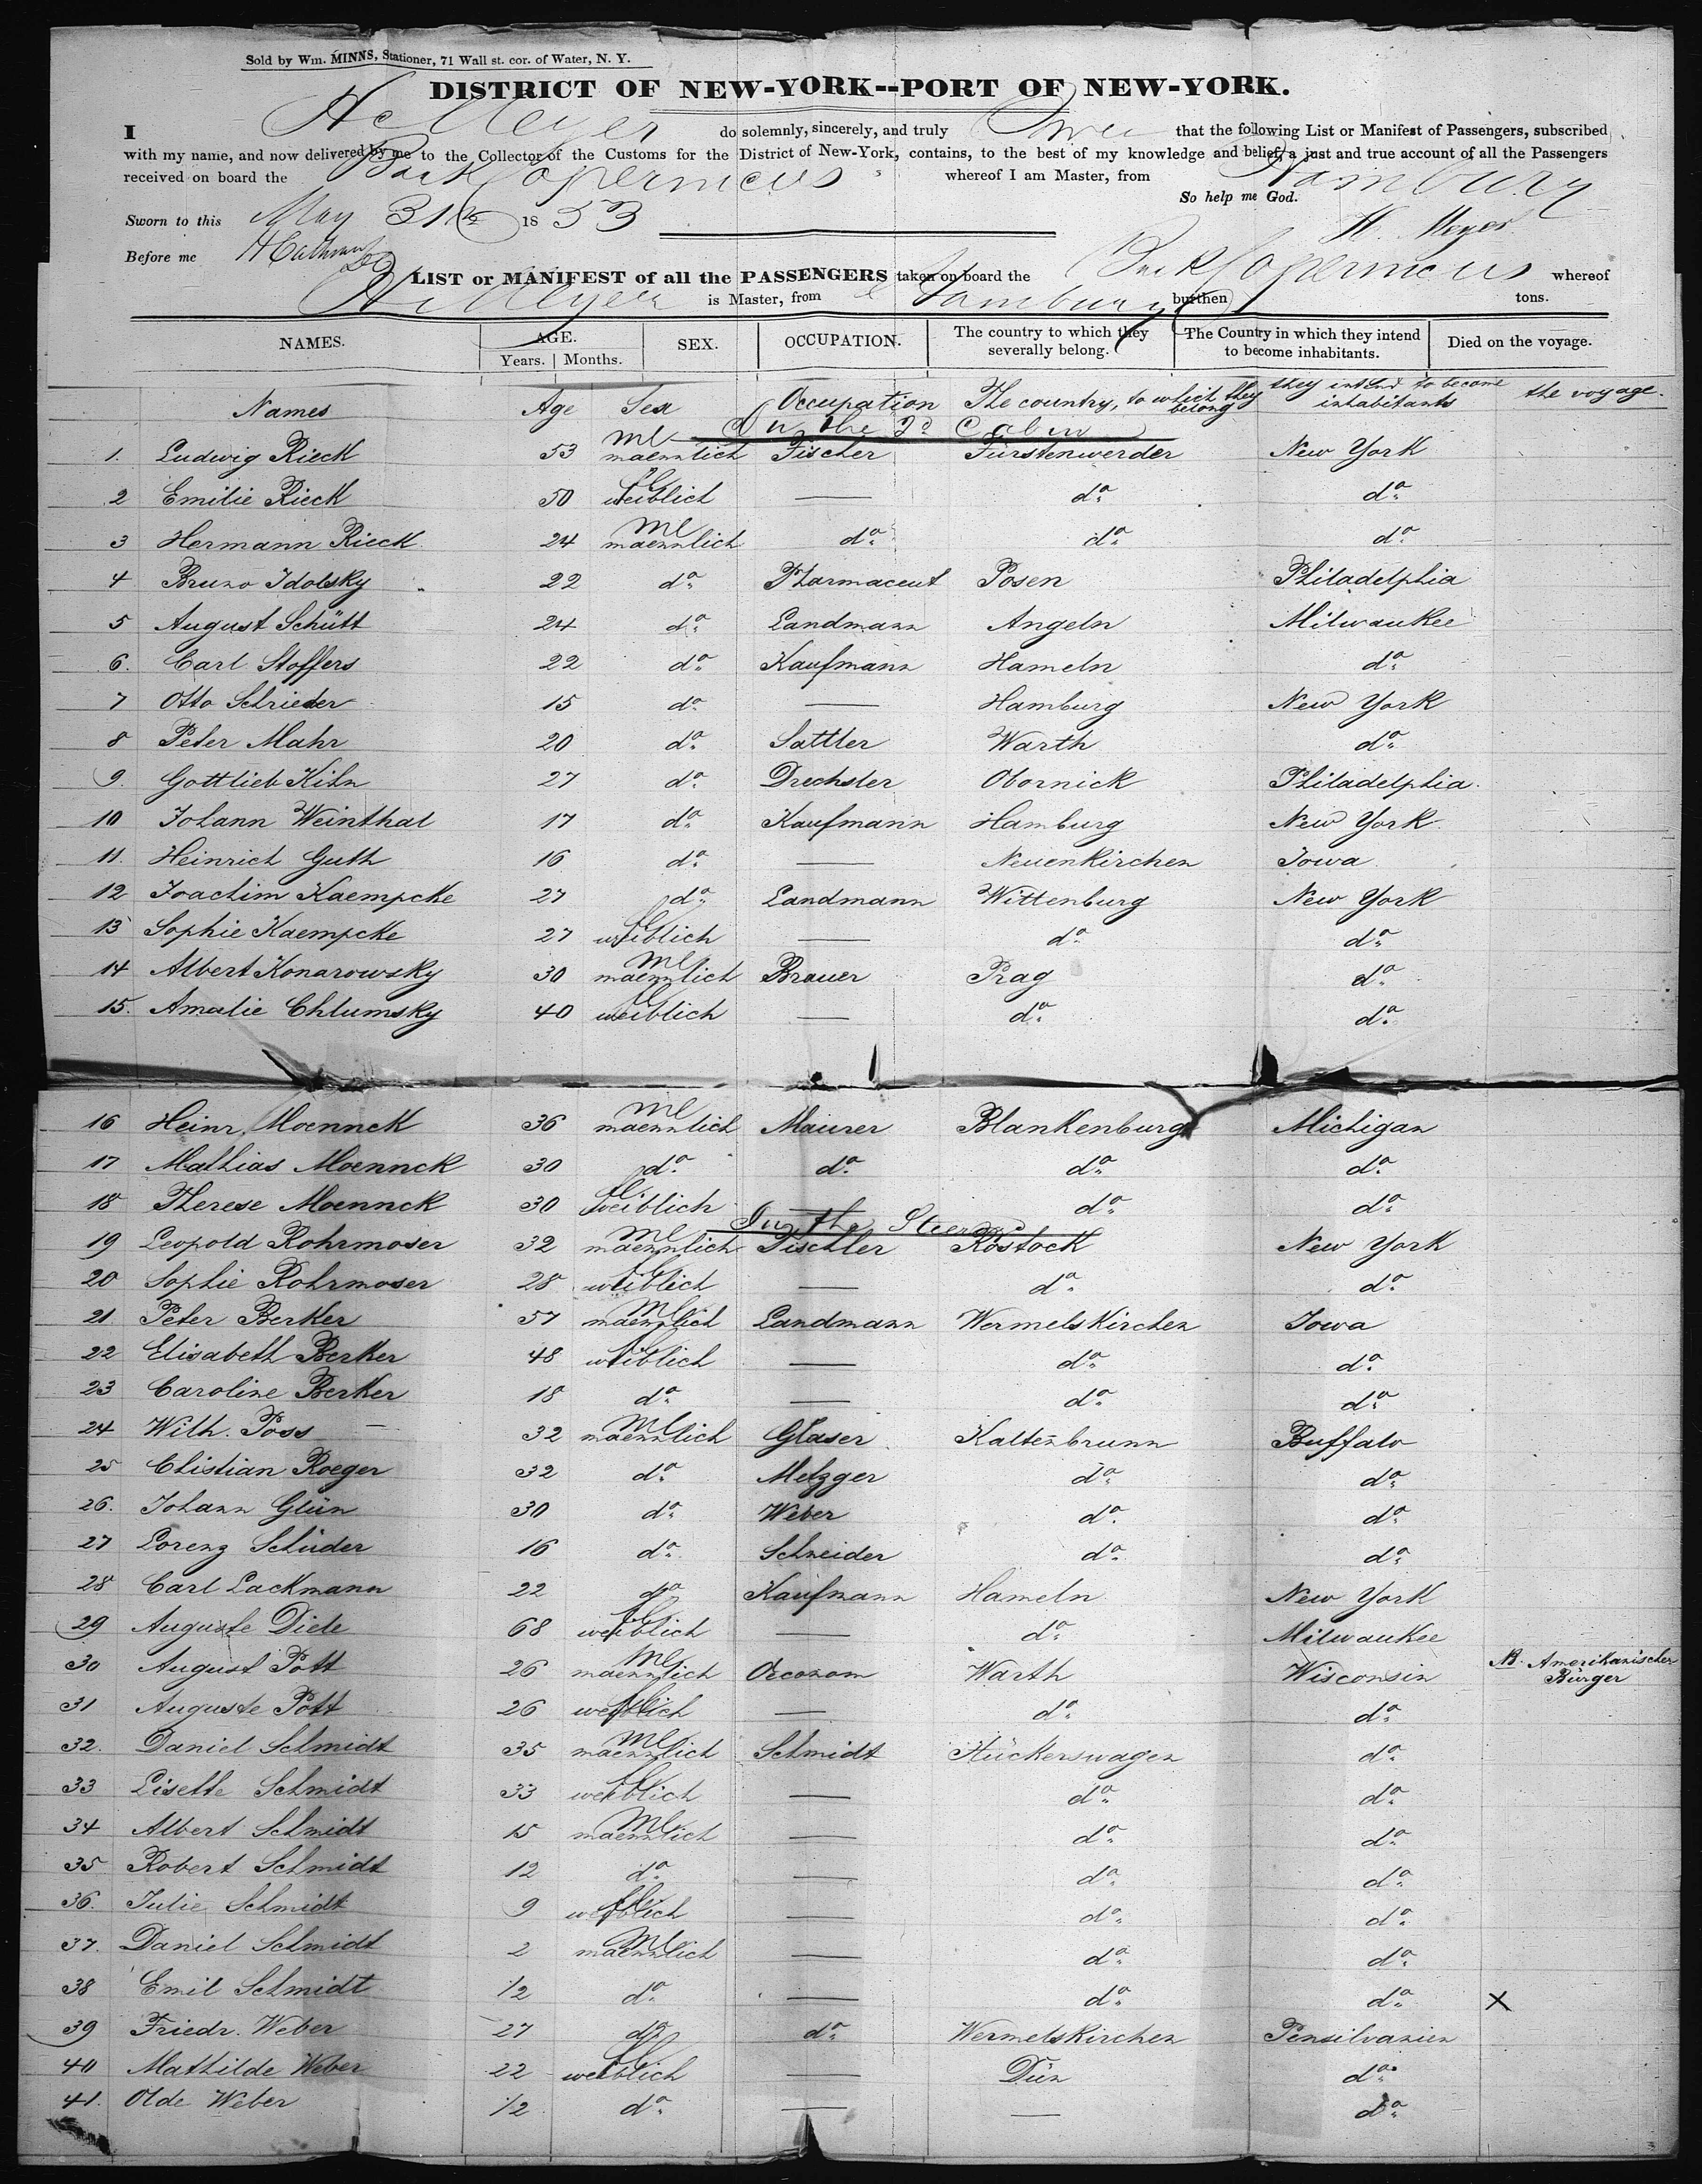 Sold by Wm. MINNS, Stationer, 71 Wall st. cor. of Water, N. Y.
DISTRICT OF NEW-YORK--PORT OF NEW-YORK.
I H. Meyer do solemnly, sincerely, and truly Swear that the following List or Manifest of Passengers, subscribed
with my name, and now delivered by me to the Collector of the Customs for the District of New-York, contains, to the best of my knowledge and belief, a just and true account of all the Passengers
received on board the Bark Copernicus whereof I am Master, from Hamburg
So help me God.
Sworn to this May 31st 1853 H. Meyer
Before me
LIST or MANIFEST of all the PASSENGERS taken on board the Bark Copernicus whereof
H. Meyer is Master, from Hamburg burthen tons.
NAMES. AGE. Years. Months. SEX. OCCUPATION. The country to which they severally belong. The Country in which they intend to become inhabitants. Died on the voyage.
Names Age Sex Occupation The country, to which they belong they intend to become inhabitants the voyage.
In the 2d Cabin
1. Ludwig Rieck 53 maennlich Fischer Fürstenwerder New York
2 Emilie Rieck 50 weiblich — do. do.
3 Hermann Rieck 24 maennlich do. do. do.
4 Bruno Idolsky 22 do. Pharmaceut Posen Philadelphia
5 August Schütt 24 do. Landmann Angeln Milwaukee
6. Carl Stoffers 22 do. Kaufmann Hameln do.
7 Otto Schrieder 15 do. — Hamburg New York
8 Peter Mahr 20 do. Sattler Warth do.
9. Gottlieb Kihn 27 do. Drechsler Obornick Philadelphia.
10 Johann Weinthal 17 do. Kaufmann Hamburg New York
11. Heinrich Guth 16 do. — Neuenkirchen Iowa
12 Joachim Kaempcke 27 do. Landmann Wittenburg New York
13 Sophie Kaempcke 27 weiblich — do. do.
14 Albert Konarowsky 30 maennlich Brauer Prag do.
15. Amalie Chlumsky 40 weiblich — do. do.
16 Heinr. Moennck 36 maennlich Maurer Blankenburg Michigan
17 Mathias Moennck 30 do. do. do. do.
18 Therese Moennck 30 weiblich do. do.
In the Steerage
19 Leopold Rohrmoser 32 maennlich Tischler Rostock New York
20 Sophie Rohrmoser 28 weiblich — do. do.
21. Peter Berker 57 maennlich Landmann Wermelskirchen Iowa
22 Elisabeth Berker 48 weiblich — do. do.
23 Caroline Berker 18 do. — do. do.
24 Wilh. Poss 32 maennlich Glaser Kaltenbrunn Buffalo
25 Chistian Roeger 32 do. Metzger do. do.
26. Johann Glün 30 do. Weber do. do.
27 Lorenz Schüder 16 do. Schneider do. do.
28 Carl Lackmann 22 do. Kaufmann Hameln New York
29 Auguste Diele 68 weiblich — do. Milwaukee
30 August Pott 26 maennlich Oeconom Warth Wisconsin NB. Amerikanischer Bürger
31 Auguste Pott 26 weiblich — do. do.
32. Daniel Schmidt 35 maennlich Schmidt Hückerswagen do.
33 Lisette Schmidt 33 weiblich — do. do.
34 Albert Schmidt 15 maennlich — do. do.
35 Robert Schmidt 12 do. — do. do.
36. Julie Schmidt 9 weiblich — do. do.
37. Daniel Schmidt 2 maennlich — do. do.
38 Emil Schmidt 1/2 do. — do. do. X
39 Friedr. Weber 27 do. do. Wermelskirchen Pensilvanien
40 Mathilde Weber 22 weiblich — Dün do.
41. Olde Weber 1/2 do. — — do.